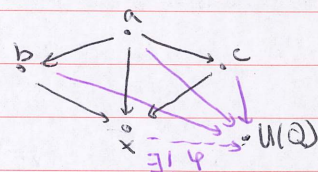 a
b c
x U(Q)
∃! φ